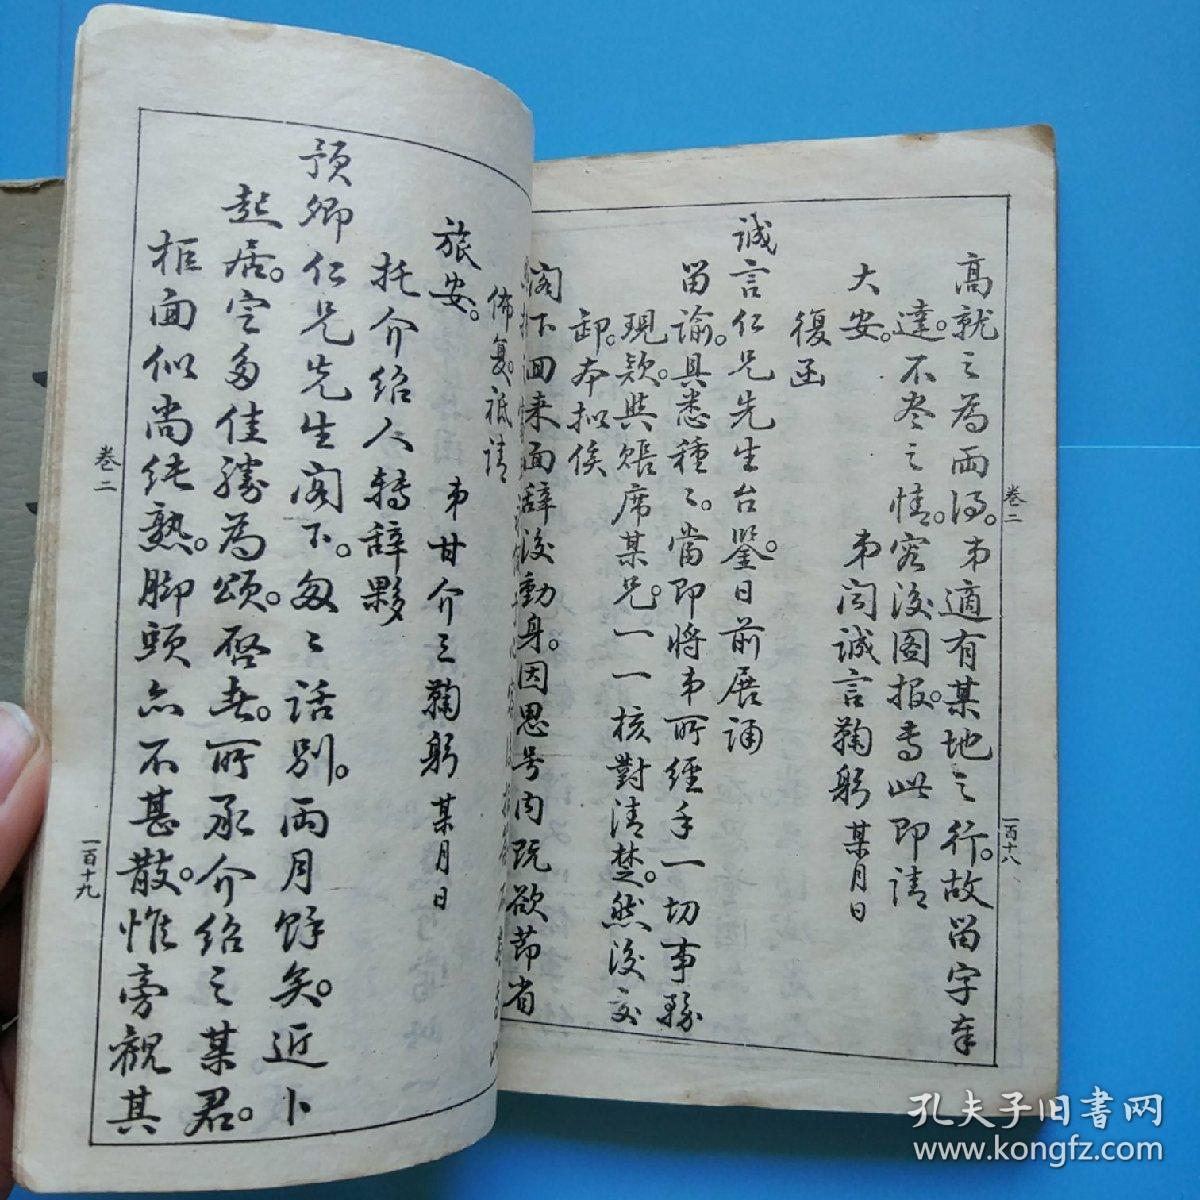 高就之為两得。弟適有某地之行。故留字奉
達。不尽之情。容後图报。专此即請
大安。
弟闵誠言鞠躬 某月日
復函
誠言仁兄先生台鑒。日前展誦
留諭。具悉種々。當即將弟所經手一切事務
現款。與賬席某兄。一一核對清楚。然後交
卸。本拟俟
阁下回来面辞後動身。因思号内既欲节省
佈复。祗請
旅安。
弟甘介三鞠躬 某月日
托介绍人轉辞夥
预卿仁兄先生阁下。匆々話别。两月馀矣。近卜
起居。定多佳勝為頌。启者。所承介绍之某君。
柜面似尚纯熟。脚頭亦不甚散。惟旁观其
卷二
一百十八
卷二
一百十九
孔夫子旧書网
www.kongfz.com